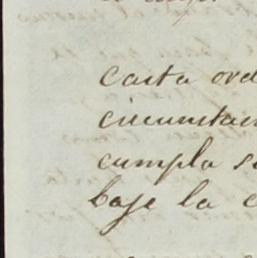 Carta ord
circunstan
cumpla s
baje la c